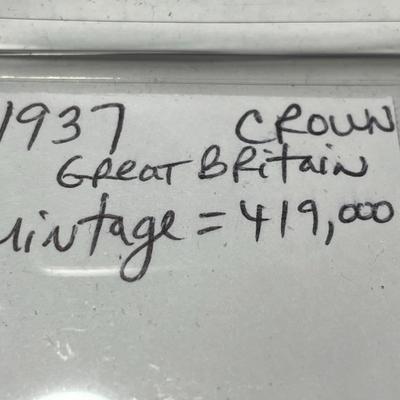 1937 CROWN
GREAT BRitain
mintage = 419,000